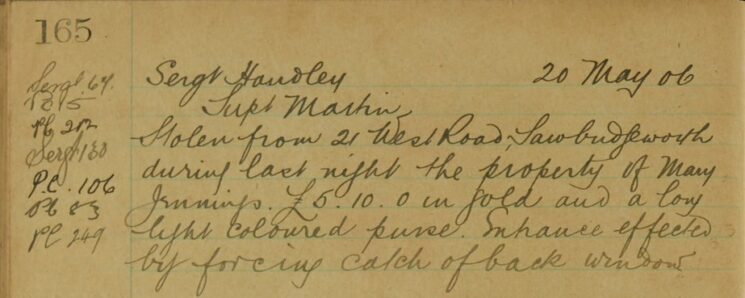 165
Sergt 64.
PC 15
PC 212
Sergt 130
P.C. 106
PC 83
PC 249
Sergt Handley 20 May 06
Supt Martin
Stolen from 21 West Road, Sawbridgeworth
during last night the property of Mary
Jennings. £5. 10. 0 in gold and a long
light coloured purse. Entrance effected
by forcing catch of back window